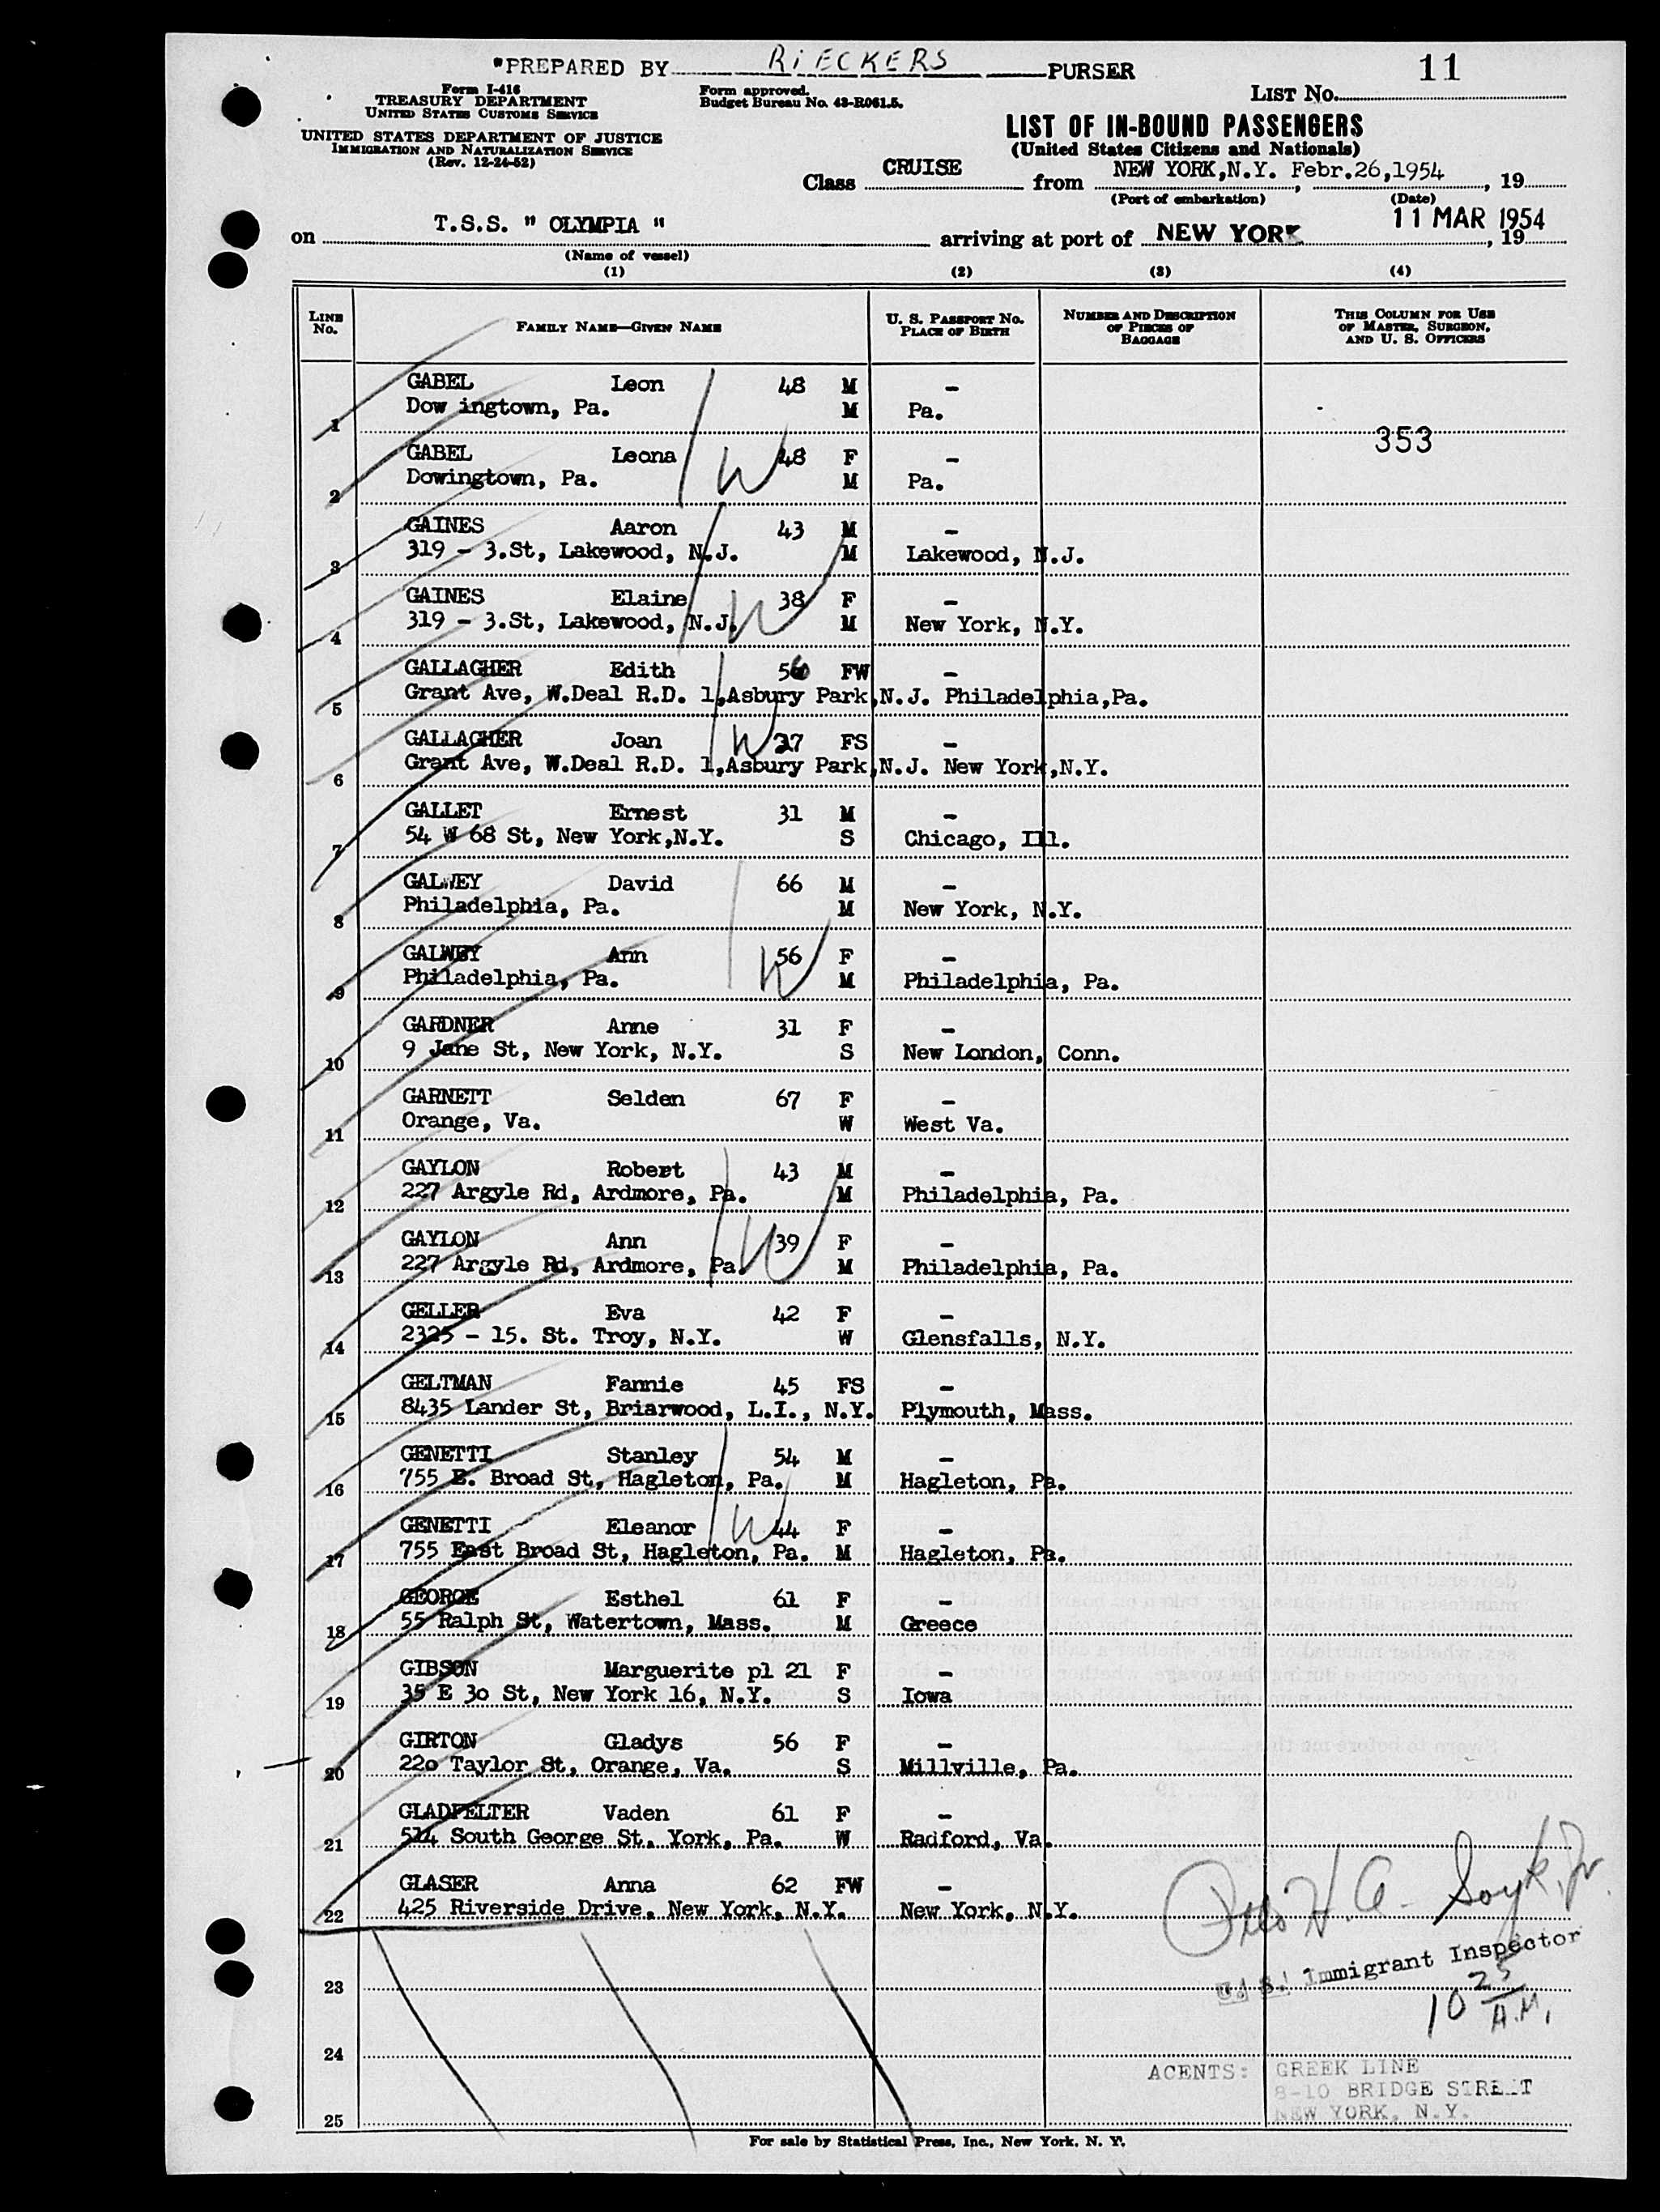 *PREPARED BY RiECKERS PURSER
11
LIST No.
Form I-416
TREASURY DEPARTMENT
UNITED STATES CUSTOMS SERVICE
Form approved.
Budget Bureau No. 43-R061.5.
UNITED STATES DEPARTMENT OF JUSTICE
IMMIGRATION AND NATURALIZATION SERVICE
(Rev. 12-24-52)
LIST OF IN-BOUND PASSENGERS
(United States Citizens and Nationals)
Class CRUISE from NEW YORK,N.Y. Febr.26,1954, 19
(Port of embarkation) (Date)
on T.S.S. " OLYMPIA " arriving at port of NEW YORK 11 MAR 1954, 19
(Name of vessel)
(1) (2) (3) (4)
LINE No. FAMILY NAME—GIVEN NAME U. S. PASSPORT No. PLACE OF BIRTH NUMBER AND DESCRIPTION OF PIECES OF BAGGAGE THIS COLUMN FOR USE OF MASTER, SURGEON, AND U. S. OFFICERS
GABEL Leon 48 M -
1 Dow ingtown, Pa. M Pa.
353
GABEL Leona W 48 F -
2 Dowingtown, Pa. M Pa.
GAINES Aaron 43 M -
3 319 - 3.St, Lakewood, N.J. M Lakewood, N.J.
GAINES Elaine W 38 F -
4 319 - 3.St, Lakewood, N.J. M New York, N.Y.
GALLAGHER Edith 56 FW -
5 Grant Ave, W.Deal R.D. 1,Asbury Park,N.J. Philadelphia,Pa.
GALLAGHER Joan W 27 FS -
6 Grant Ave, W.Deal R.D. 1,Asbury Park,N.J. New York,N.Y.
GALLET Ernest 31 M -
7 54 W 68 St, New York,N.Y. S Chicago, Ill.
GALWEY David 66 M -
8 Philadelphia, Pa. M New York, N.Y.
GALWEY Ann W 56 F -
9 Philadelphia, Pa. M Philadelphia, Pa.
GARDNER Anne 31 F -
10 9 Jane St, New York, N.Y. S New London, Conn.
GARNETT Selden 67 F -
11 Orange, Va. W West Va.
GAYLON Robert 43 M -
12 227 Argyle Rd, Ardmore, Pa. M Philadelphia, Pa.
GAYLON Ann W 39 F -
13 227 Argyle Rd, Ardmore, Pa. M Philadelphia, Pa.
GELLER Eva 42 F -
14 2325 - 15. St. Troy, N.Y. W Glensfalls, N.Y.
GELTMAN Fannie 45 FS -
15 8435 Lander St, Briarwood, L.I., N.Y. Plymouth, Mass.
GENETTI Stanley 54 M -
16 755 E. Broad St, Hagleton, Pa. M Hagleton, Pa.
GENETTI Eleanor W 44 F -
17 755 East Broad St, Hagleton, Pa. M Hagleton, Pa.
GEORGE Esthel 61 F -
18 55 Ralph St, Watertown, Mass. M Greece
GIBSON Marguerite pl 21 F -
19 35 E 3o St, New York 16, N.Y. S Iowa
GIRTON Gladys 56 F -
20 22o Taylor St, Orange, Va. S Millville, Pa.
GLADFELTER Vaden 61 F -
21 514 South George St. York, Pa. W Radford, Va.
GLASER Anna 62 FW -
22 425 Riverside Drive, New York, N.Y. New York, N.Y.
Otto H. A. Soyk, Jr.
U. S. Immigrant Inspector
23
10 25 A.M.
24
ACENTS: GREEK LINE
8-10 BRIDGE STREET
25 NEW YORK, N.Y.
For sale by Statistical Press, Inc., New York, N. Y.